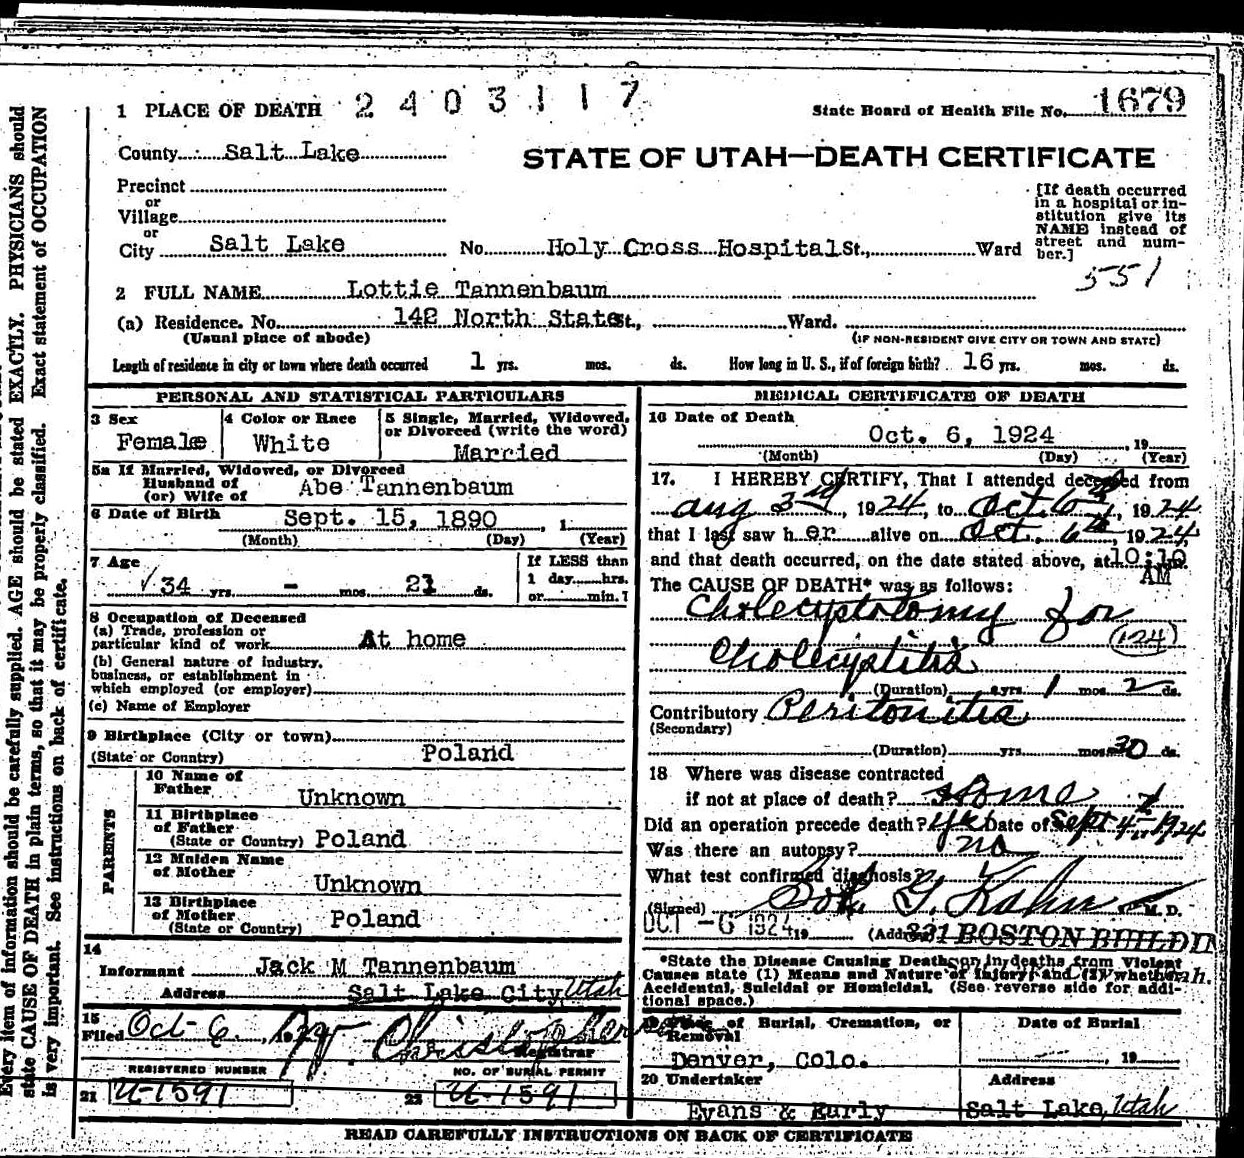 1 PLACE OF DEATH 2403117
State Board of Health File No. 1679
County Salt Lake
STATE OF UTAH—DEATH CERTIFICATE
Precinct
or
Village
or
City Salt Lake No. Holy Cross Hospital St., Ward
[If death occurred
in a hospital or in-
stitution give its
NAME instead of
street and num-
ber.]
551
2 FULL NAME Lottie Tannenbaum
(a) Residence. No. 142 North State St., Ward.
(Usual place of abode) (IF NON-RESIDENT GIVE CITY OR TOWN AND STATE)
Length of residence in city or town where death occurred 1 yrs. mos. ds. How long in U. S., if of foreign birth? 16 yrs. mos. ds.
PERSONAL AND STATISTICAL PARTICULARS
3 Sex
Female
4 Color or Race
White
5 Single, Married, Widowed,
or Divorced (write the word)
Married
5a If Married, Widowed, or Divorced
Husband of
(or) Wife of Abe Tannenbaum
6 Date of Birth Sept. 15, 1890, 1
(Month) (Day) (Year)
7 Age
34 yrs. – mos. 21 ds.
If LESS than
1 day hrs.
or min.
8 Occupation of Deceased
(a) Trade, profession or
particular kind of work At home
(b) General nature of industry,
business, or establishment in
which employed (or employer)
(c) Name of Employer
9 Birthplace (City or town)
(State or Country) Poland
PARENTS
10 Name of
Father Unknown
11 Birthplace
of Father
(State or Country) Poland
12 Maiden Name
of Mother
Unknown
13 Birthplace
of Mother
(State or Country) Poland
14
Informant Jack M Tannenbaum
Address Salt Lake City, Utah
15
Filed Oct-6, 1924
Registrar
REGISTERED NUMBER NO. OF BURIAL PERMIT
21 U-1591 22 U-1591
MEDICAL CERTIFICATE OF DEATH
16 Date of Death
Oct. 6, 1924, 19
(Month) (Day) (Year)
17. I HEREBY CERTIFY, That I attended deceased from
Aug 3rd, 1924, to Oct. 6, 1924
that I last saw her alive on Oct. 6th, 1924,
and that death occurred, on the date stated above, at 10:10
AM
The CAUSE OF DEATH* was as follows:
Cholecystotomy for
(124)
Cholecystitis
(Duration) yrs. 1 mos. 2 ds.
Contributory Peritonitis
(Secondary)
(Duration) yrs. mos. 30 ds.
18 Where was disease contracted
if not at place of death? Home
Did an operation precede death? Yes Date of Sept 4, 1924
Was there an autopsy? no
What test confirmed diagnosis?
(Signed) Sol. G. Kahn M. D.
OCT -6 1924 19 (Address) 321 BOSTON BUILDIN
*State the Disease Causing Death, or in deaths from Violent
Causes state (1) Means and Nature of Injury; and (2) whether
Accidental, Suicidal or Homicidal. (See reverse side for addi-
tional space.)
19 Place of Burial, Cremation, or
Removal
Denver, Colo.
Date of Burial
, 19
20 Undertaker
Evans & Early
Address
Salt Lake, Utah
READ CAREFULLY INSTRUCTIONS ON BACK OF CERTIFICATE
Every item of information should be carefully supplied. AGE should be stated EXACTLY. PHYSICIANS should
state CAUSE OF DEATH in plain terms, so that it may be properly classified. Exact statement of OCCUPATION
is very important. See instructions on back of certificate.